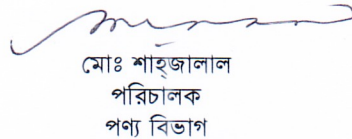 মোঃ শাহ্জালাল
পরিচালক
পণ্য বিভাগ